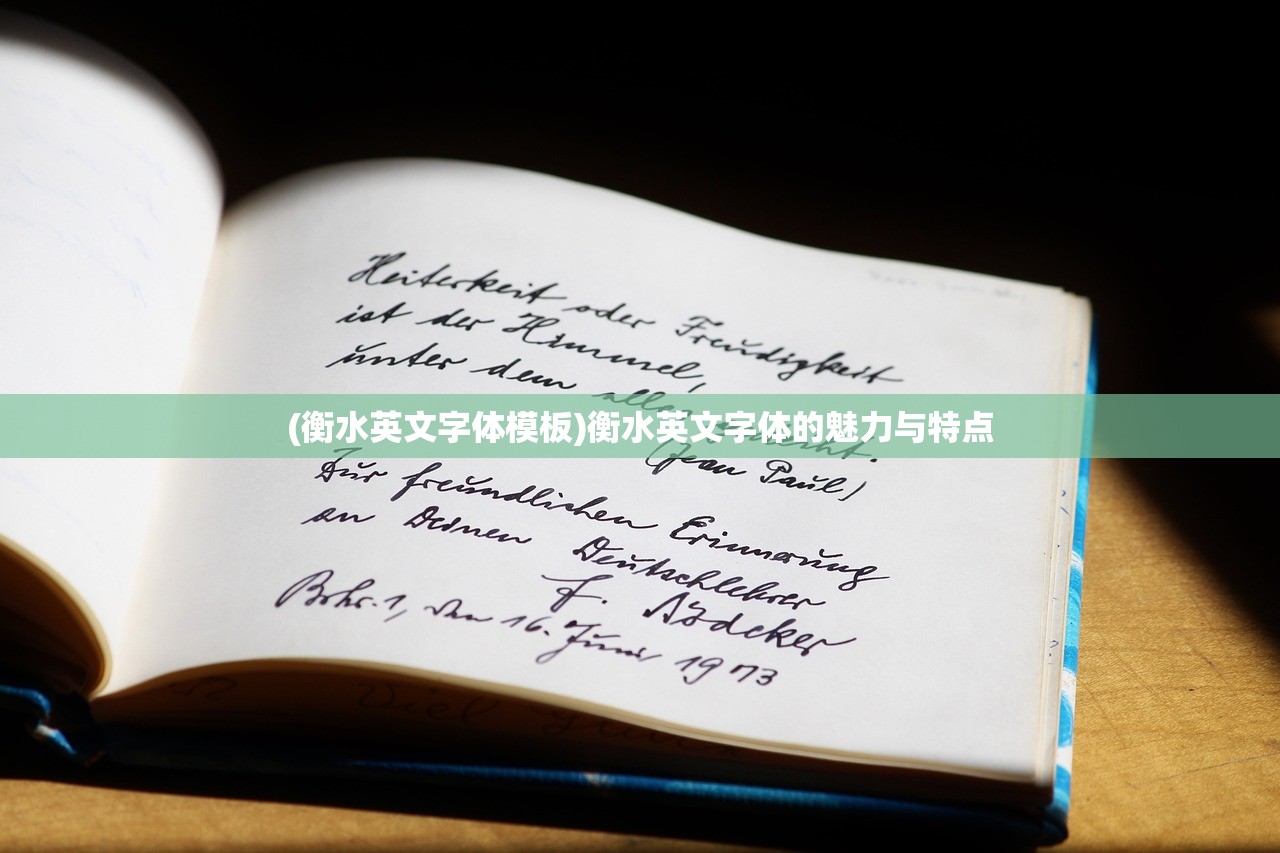 Heiterkeit oder Freudigkeit
ist der Himmel,
unter dem alles
(衡水英文字体模板)衡水英文字体的魅力与特点
(Jean Paul)
Zur freundlichen Erinnerung
an Deinen Deutschlehrer
F.
Bohr. 1, den 16. Juni 1973